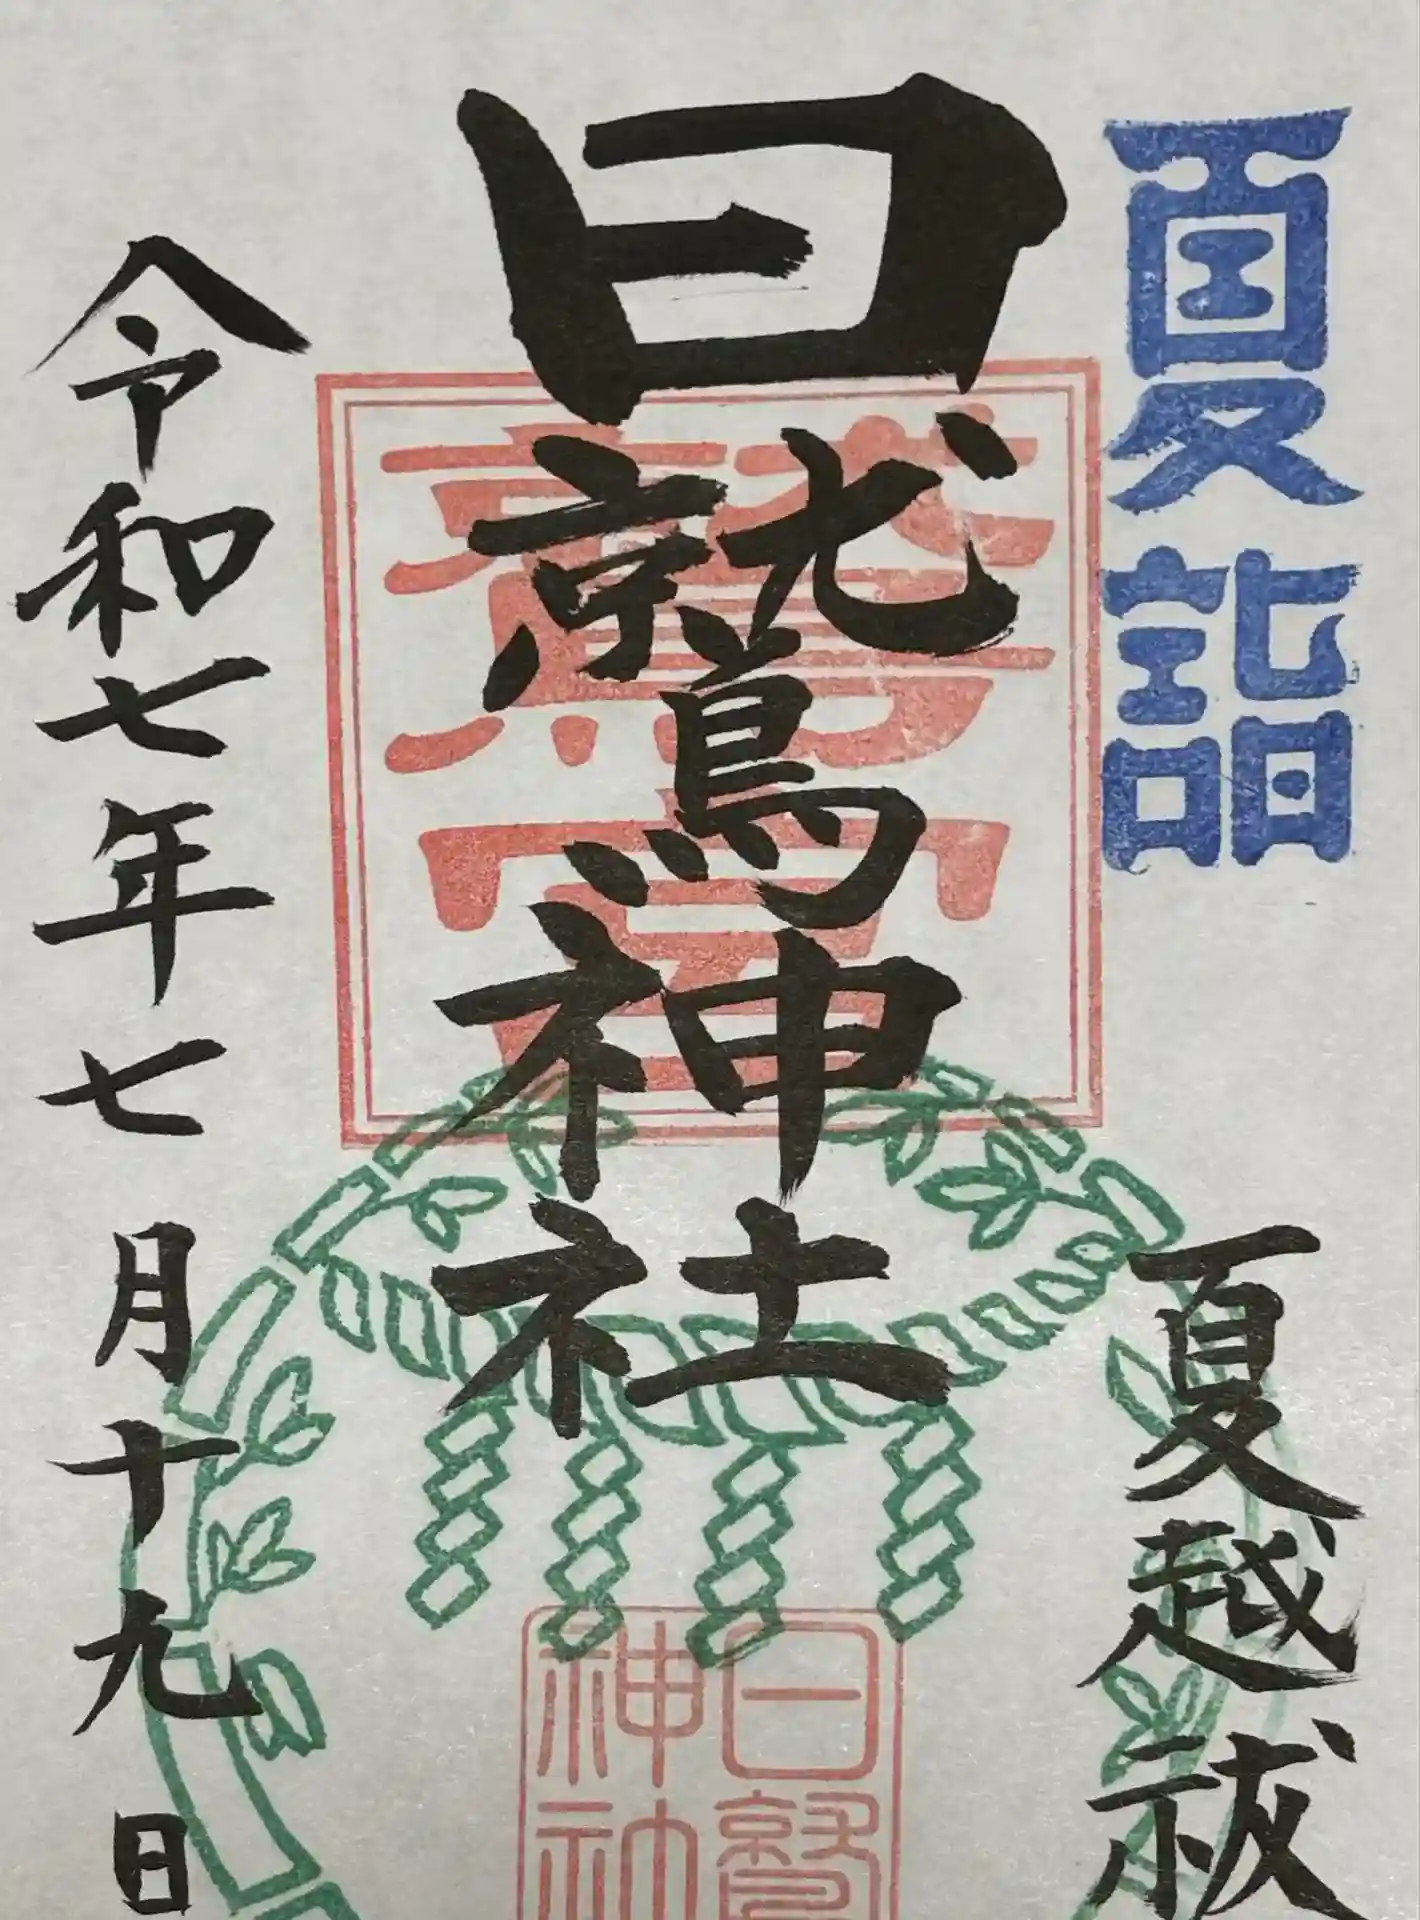 夏詣
夏越祓
日鷲神社
令和七年七月十九日
日鷲
神社